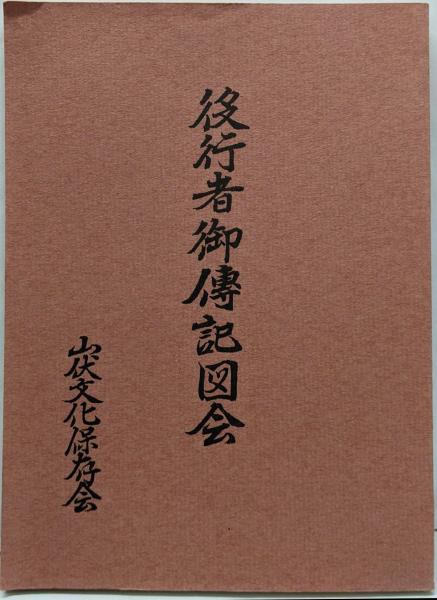 役行者御傳記図会
山伏文化保存会